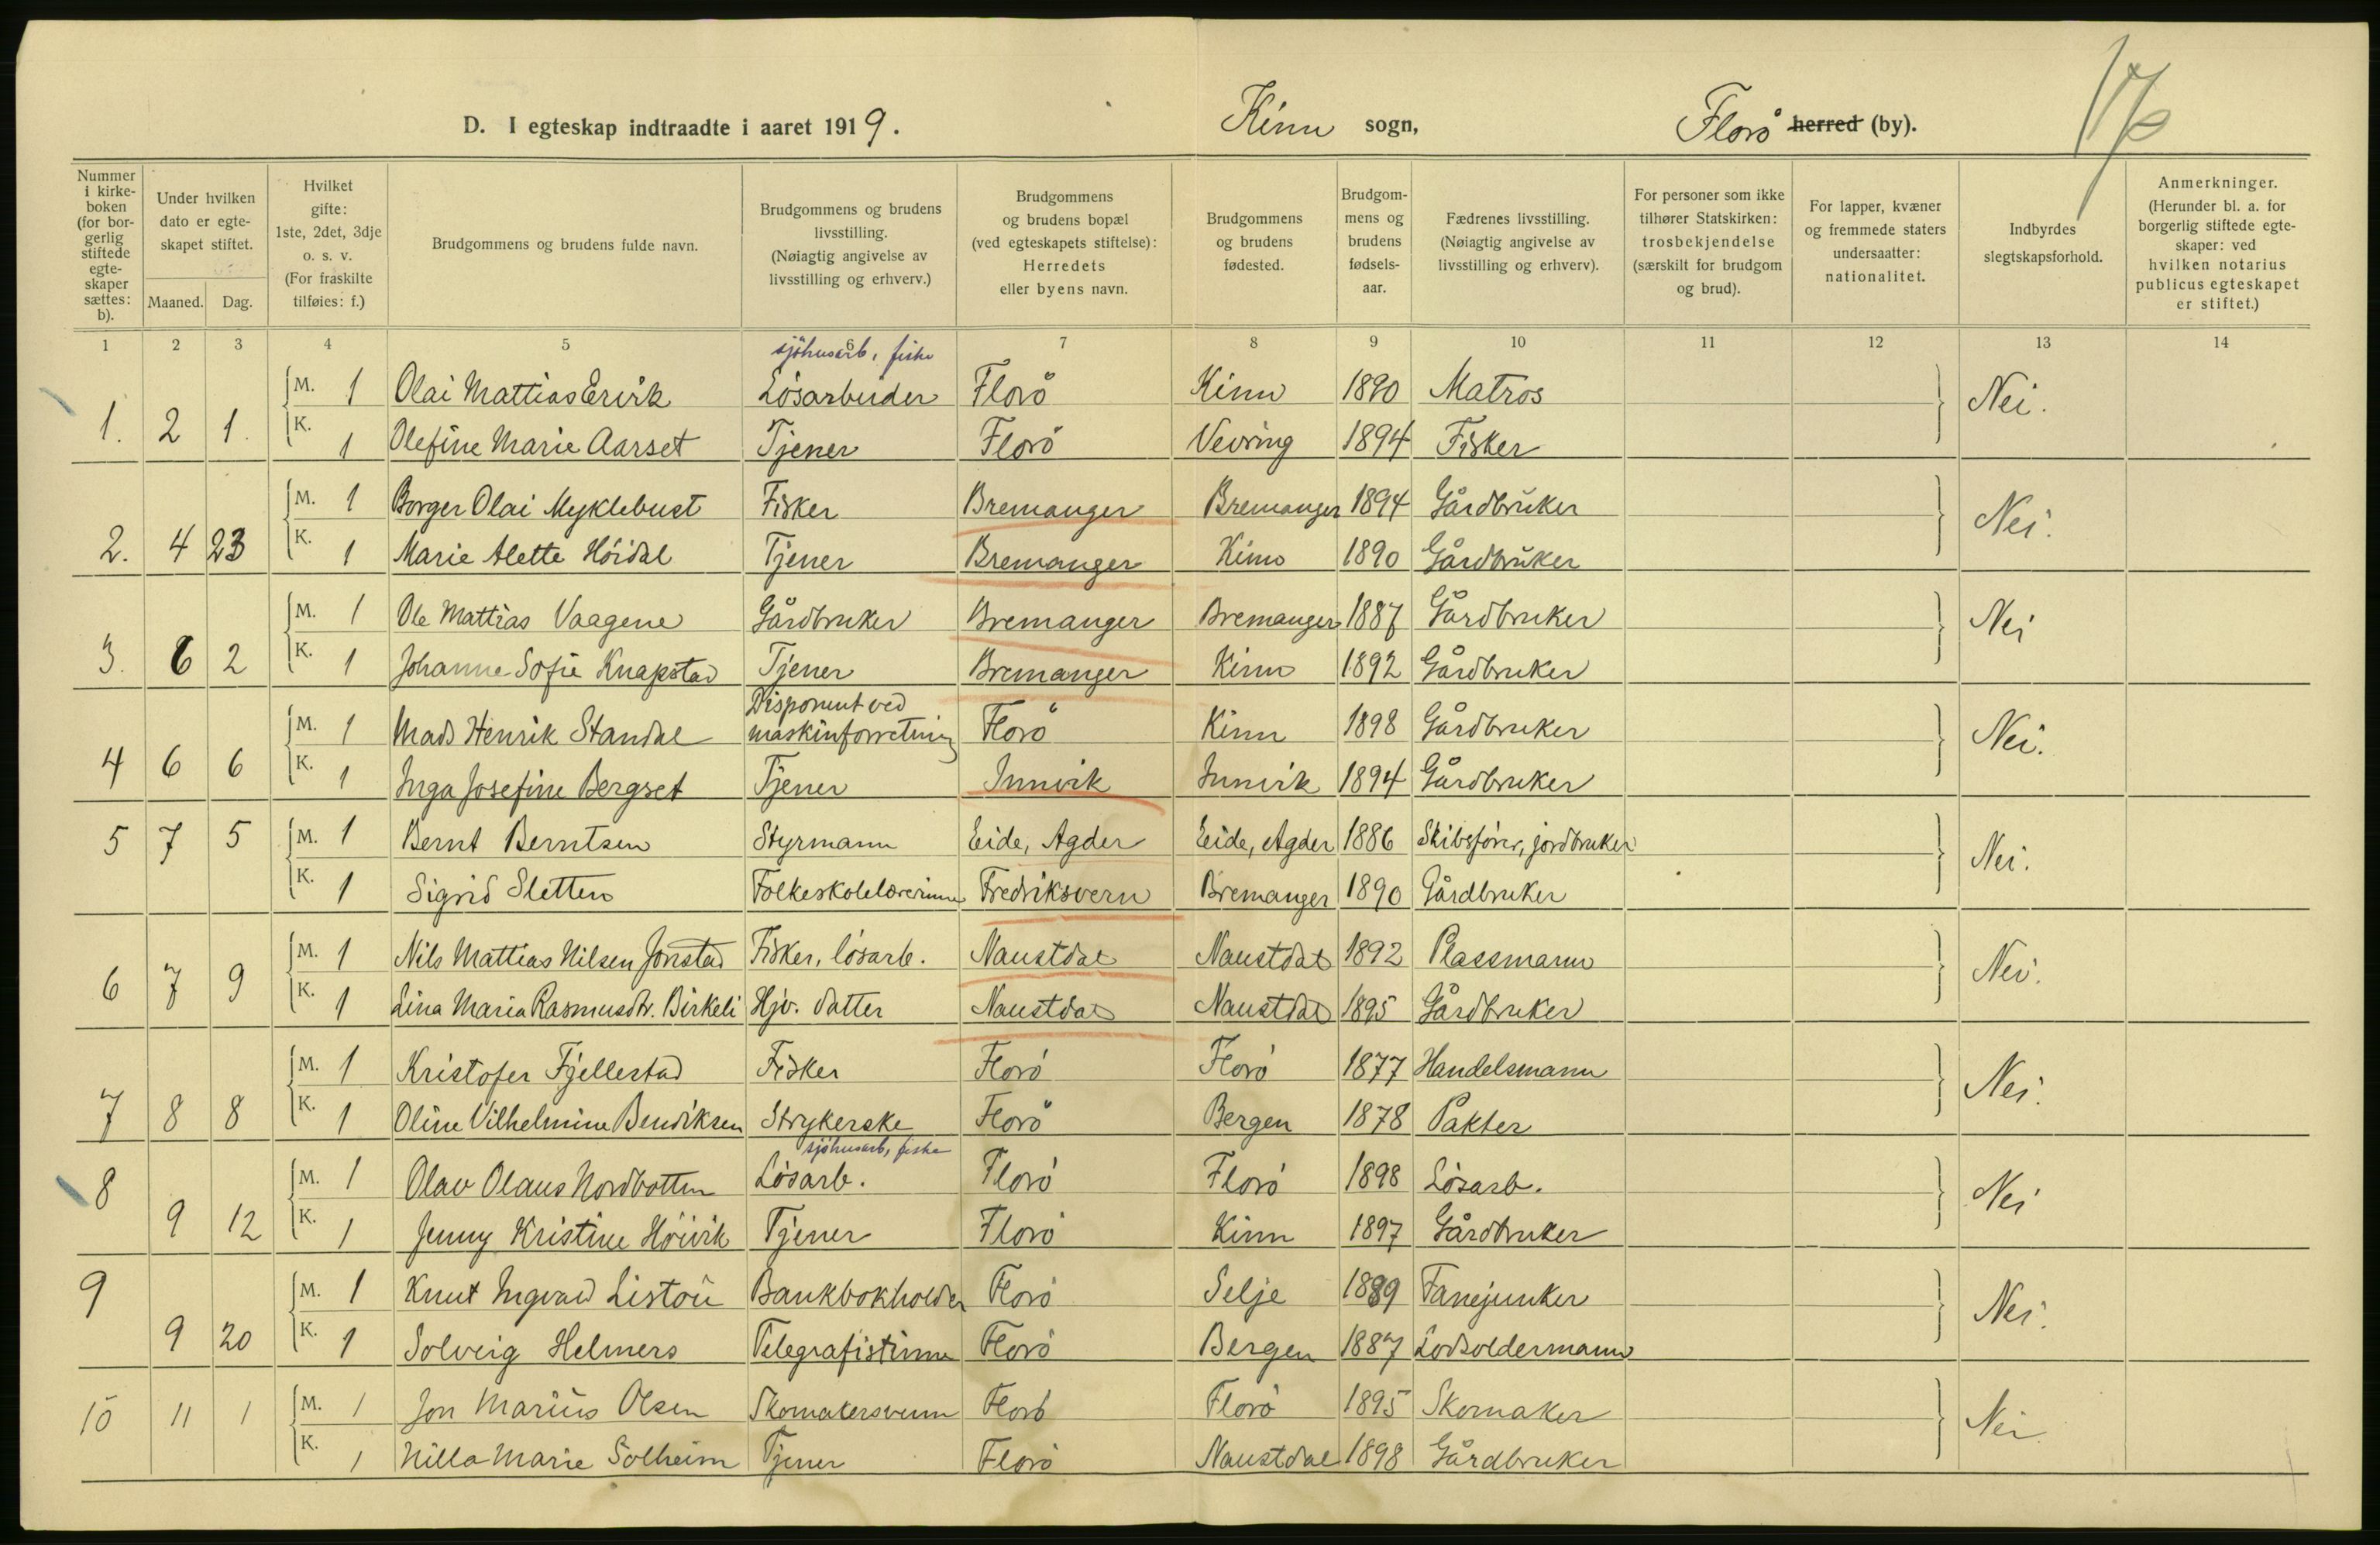 D. I egteskap indtraadte i aaret 1919. Kinn sogn, Florö herred (by).
Nummer i kirkeboken (for borgerlig stiftede egteskaper sættes: b).
Under hvilken dato er egteskapet stiftet.
Maaned. Dag.
Hvilket gifte: 1ste, 2det, 3dje o. s. v. (For fraskilte tilføies: f.)
Brudgommens og brudens fulde navn.
Brudgommens og brudens livsstilling. (Nøiagtig angivelse av livsstilling og erhverv.)
Brudgommens og brudens bopæl (ved egteskapets stiftelse): Herredets eller byens navn.
Brudgommens og brudens fødested.
Brudgommens og brudens fødselsaar.
Fædrenes livsstilling. (Nøiagtig angivelse av livsstilling og erhverv).
For personer som ikke tilhører Statskirken: trosbekjendelse (særskilt for brudgom og brud).
For lapper, kvæner og fremmede staters undersaatter: nationalitet.
Indbyrdes slegtskapsforhold.
Anmerkninger. (Herunder bl. a. for borgerlig stiftede egteskaper: ved hvilken notarius publicus egteskapet er stiftet.)
1 2 3 4 5 6 7 8 9 10 11 12 13 14
sjöhusarb, fiske
M. 1 Olai Mattias Ervik Lösarbeider Florö Kinn 1890 Matros Nei.
1. 2 1. K. 1 Olefine Marie Aarset Tjener Florö Vevring 1894 Fisker
M. 1 Borger Olai Myklebust Fisker Bremanger Bremanger 1894 Gårdbruker Nei.
2. 4 23 K. 1 Marie Alette Höidal Tjener Bremanger Kinn 1890 Gårdbruker
M. 1 Ole Mattias Vaagene Gårdbruker Bremanger Bremanger 1887 Gårdbruker Nei
3. 6 2 K. 1 Johanne Sofie Knapstad Tjener Bremanger Kinn 1892 Gårdbruker
Disponent ved
M. 1 Mads Henrik Standal maskinforretning Florö Kinn 1898 Gårdbruker Nei.
4 6 6 K. 1 Inga Josefine Bergset Tjener Innvik Innvik 1894 Gårdbruker
5 7 5 M. 1 Bernt Berntsen Styrmann Eide, Agder Eide, Agder 1886 Skibsförer, jordbruker Nei.
K. 1 Sigrid Sletten Folkeskolelærerinne Fredriksvern Bremanger 1890 Gårdbruker
M. 1 Nils Mattias Nilsen Jonstad Fisker, lösarb. Naustdal Naustdal 1892 Plassmann Nei.
6 7 9 K. 1 Lina Maria Rasmusdtr. Birkeli Hjv. datter Naustdal Naustdal 1895 Gårdbruker
M. 1 Kristofer Fjellestad Fisker Florö Florö 1877 Handelsmann Nei.
7 8 8 K. 1 Oline Vilhelmine Bendiksen Strykerske Florö Bergen 1878 Pakter
sjöhusarb, fiske
8 M. 1 Olav Olaus Nordbotten Lösarb. Florö Florö 1898 Lösarb. Nei
9 12 K. 1 Jenny Kristine Höivik Tjener Florö Kinn 1897 Gårdbruker
9 M. 1 Knut Ingvald Listöu Bankbokholder Florö Selje 1889 Fanejunker Nei.
9 20 K. 1 Solveig Helmers Telegrafistinne Florö Bergen 1887 Lodsoldermann
10 11 1 M. 1 Jon Marius Olsen Skomakersvenn Florö Florö 1895 Skomaker Nei
K. 1 Nilla Marie Solheim Tjener Florö Naustdal 1898 Gårdbruker